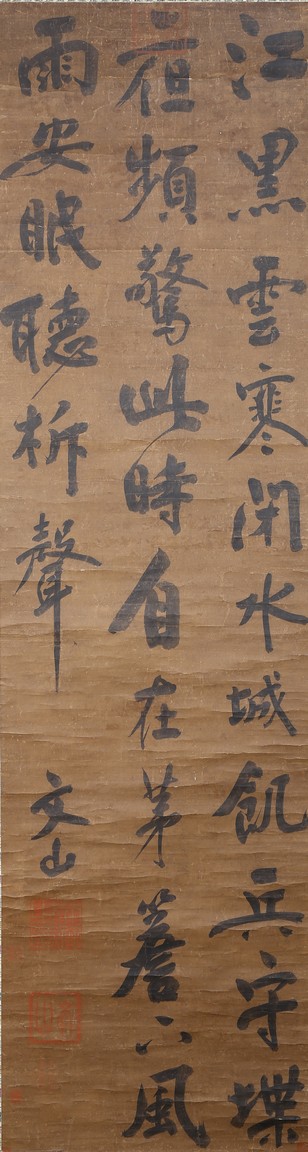 江黑雲寒閉水城飢兵守堞
頻驚此時自在茅簷下風
雨安眠聽柝聲
文山